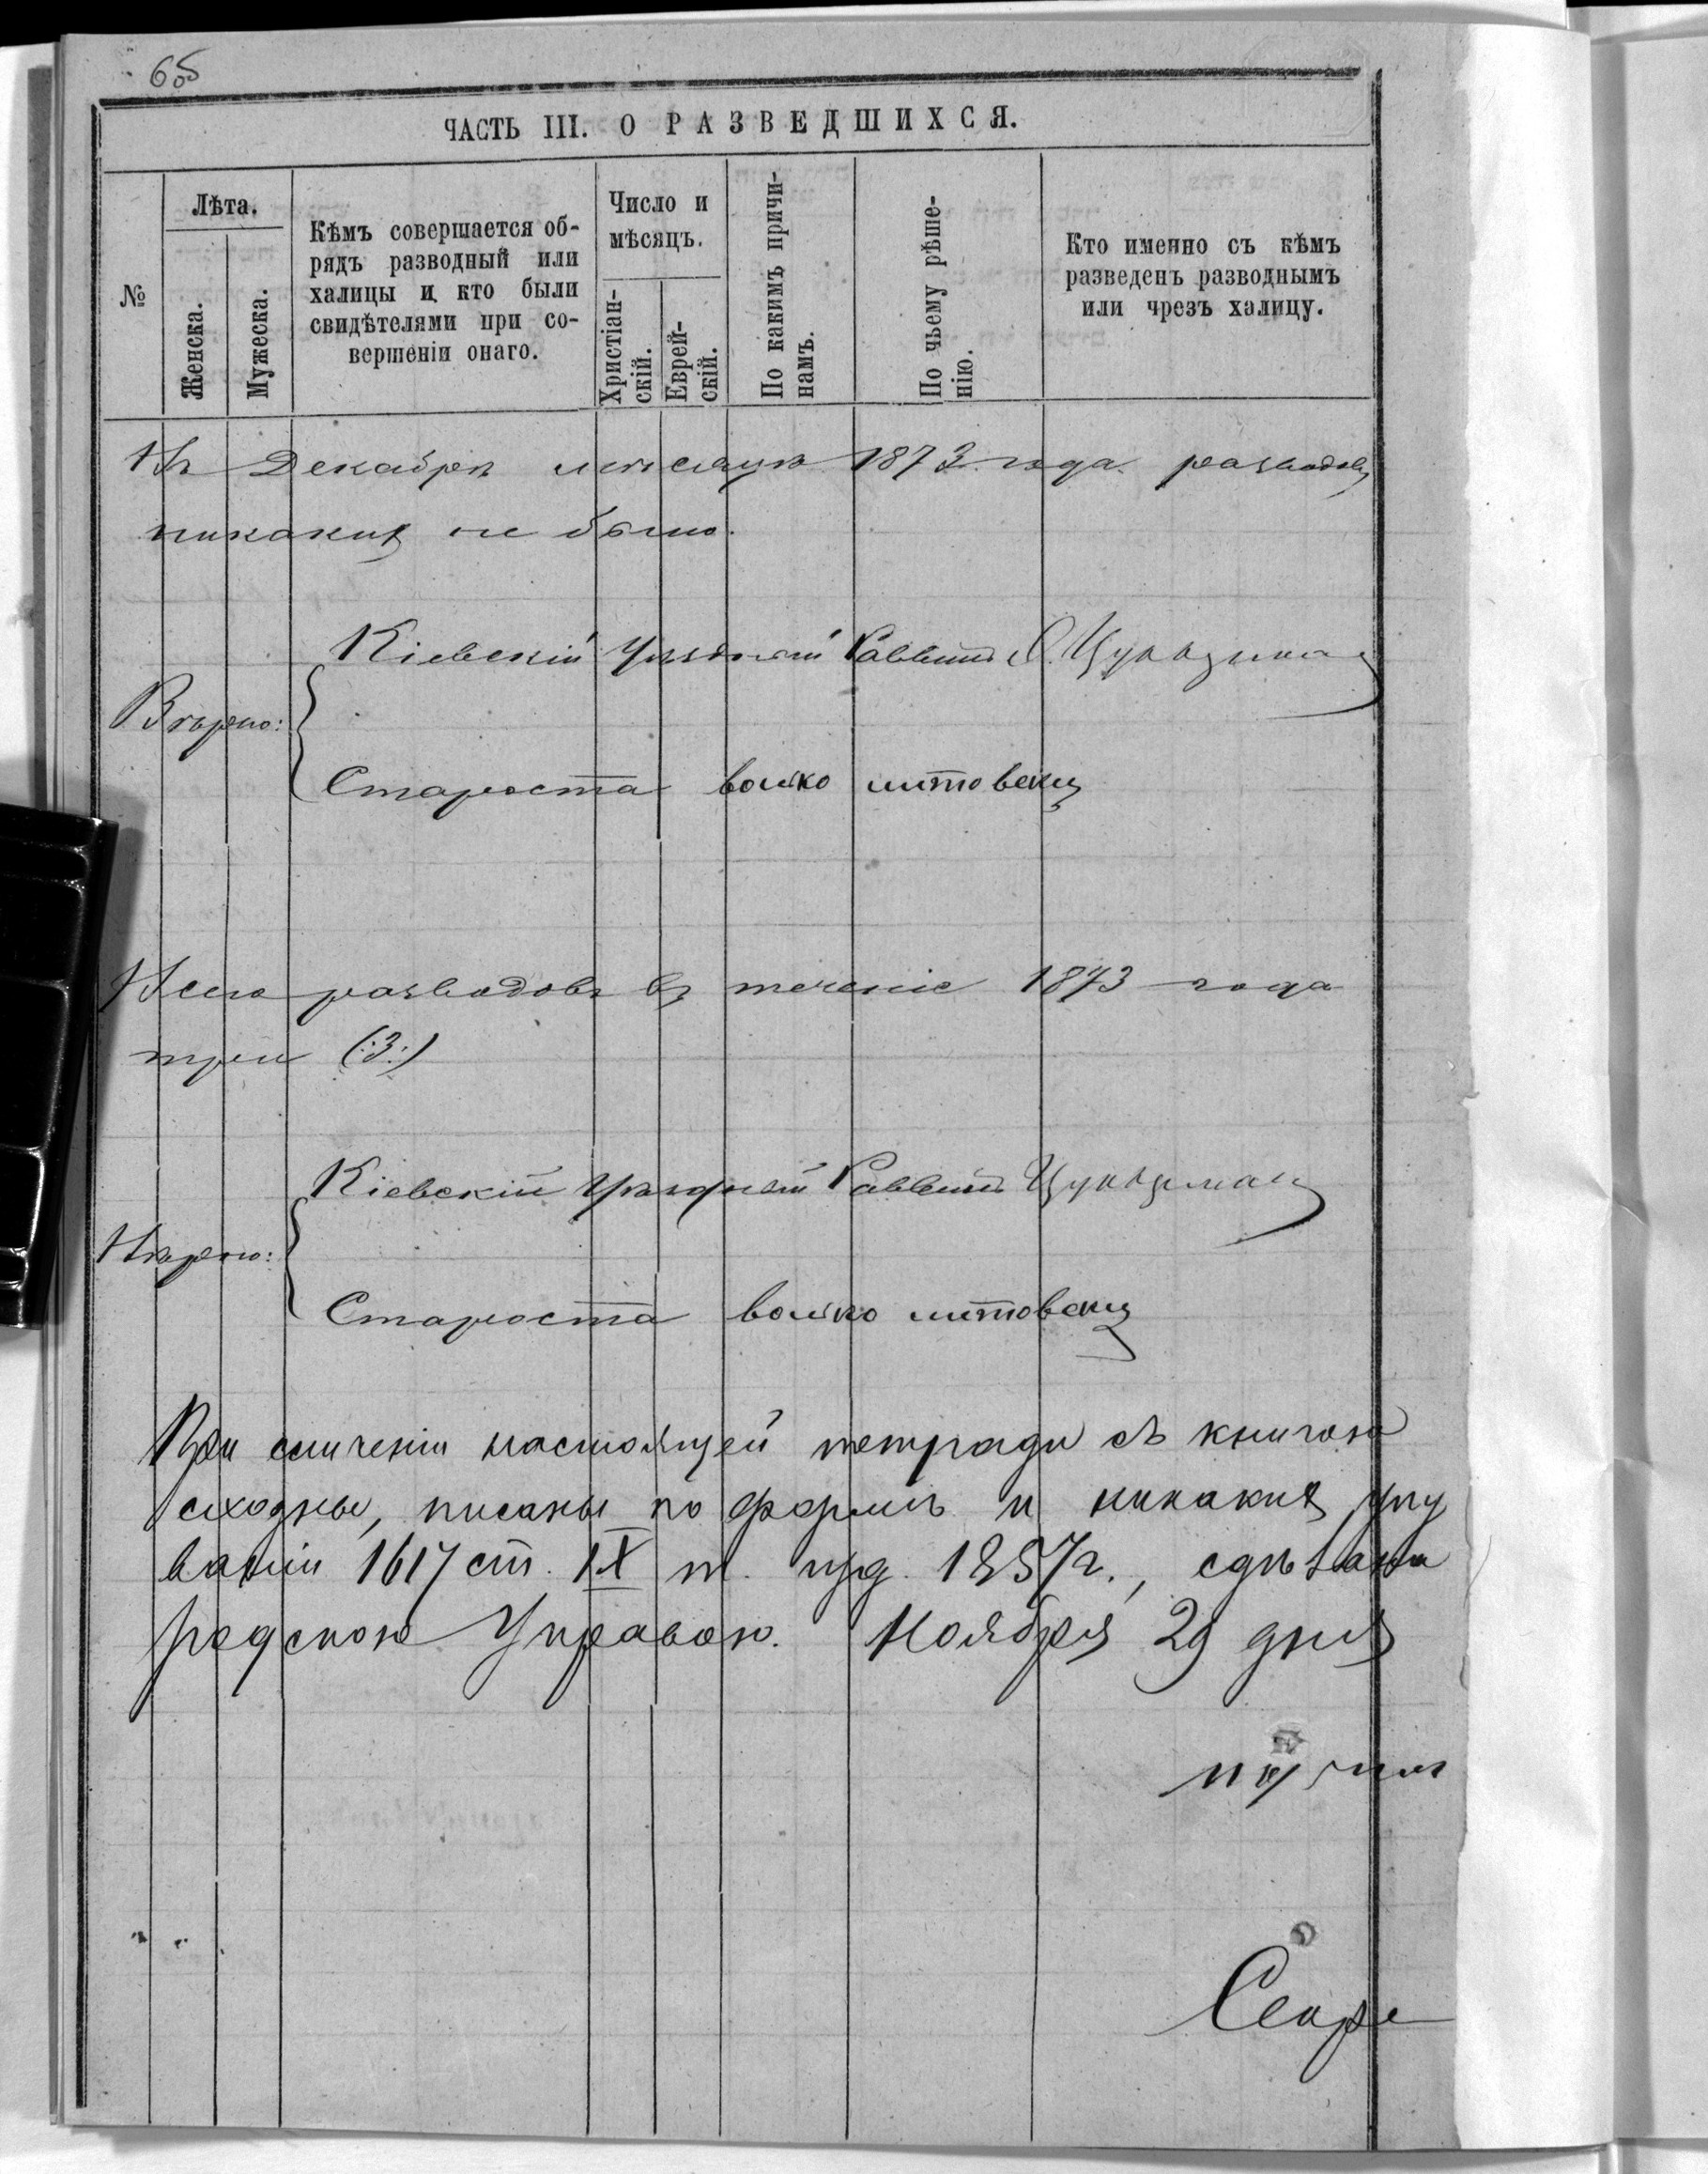 6об
ЧАСТЬ III. О РАЗВЕДШИХСЯ.
№
Лѣта.
Женска.
Мужеска.
Кѣмъ совершается об-
рядъ разводный или
халицы и кто были
свидѣтелями при со-
вершеніи онаго.
Число и
мѣсяцъ.
Христіан-
скій.
Еврей-
скій.
По какимъ причи-
намъ.
По чьему рѣше-
нію.
Кто именно съ кѣмъ
разведенъ разводнымъ
или чрезъ халицу.
Въ Декабрѣ мѣсяцѣ 1873 года разводовъ
никакихъ не было.
Кіевскій Уѣздный Раввинъ Цуккерманъ
Вѣрно:
Староста волко литовецъ
Всего разводовъ въ теченіе 1873 года
три (:3:)
Кіевскій Уѣздный Раввинъ Цуккерманъ
Вѣрно:
Староста волко литовецъ
При сличеніи настоящей тетради съ книгою
сходны, писаны по формѣ и никакихъ упу
ваніи 1617 ст. IX т. изд. 1857г., сдѣлана
родскою Управою. Ноября 29 дня
Секре